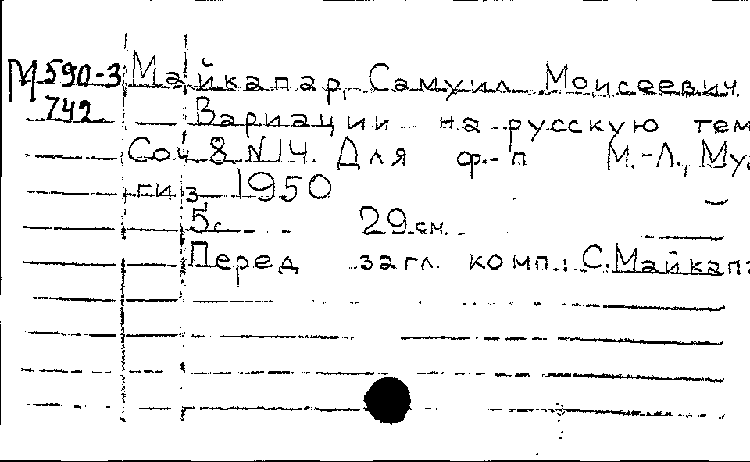 М 590-3 Майкапар, Самуил Моисеевич.
742 Вариации на русскую тем
Соч 8 N 14. Для ф.-п М.-Л., Муз
гиз 1950
5с. 29 см.
Перед загл. комп.: С. Майкапа